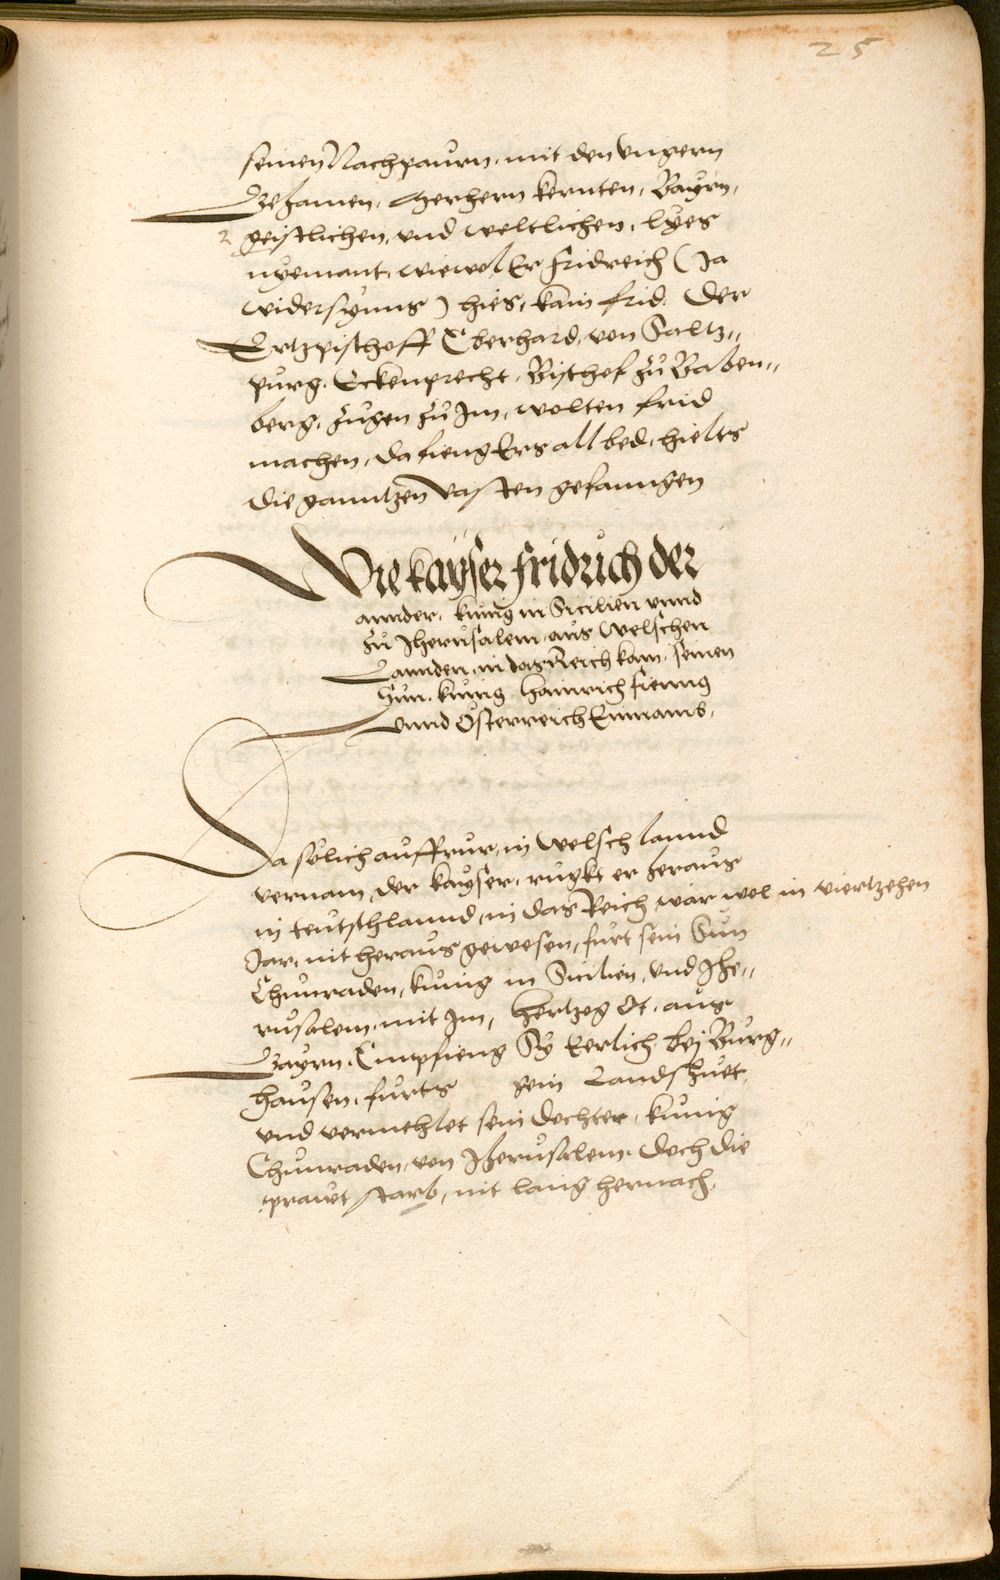 25
seinen Nachpaurn, mit den Vngern
Behamen, Merhern kernten, Bayrn,
geistlichen, vnd weltlichen, lyes
nyemant, wiewol Er fridreich (Ja
widersynns) hies, kain frid. Der
Ertzpischoff Eberhard, von Saltz„
purg, Eckenprecht, Bischof zu Baben„
berg, zugen zu Jm, wolten frid
machen, da fieng Ers all bed, hielts
die ganntzen vasten gefanngen
Wie kayser fridrich der
annder, kunig in Sicilien vnnd
zu Jherusalem, aus Welschen
Lannden, in das Reich kam, seinen
Sun, kunig hainrich fienng
vnnd Österreich Einnamb,
Da solich auffrur, in Welsch lannd
vernam, der kayser, rugkt er heraus
in teutschlannd, in das Reich, war wol in viertzehen
Jar, nit heraus gewesen, furt sein Sun
Chunraden, kunig in Sicilien, vnd Jhe„
rusalem, mit Jm, hertzog Ot, aus
Bayrn, Empfieng Sy Eerlich bej Burg„
hausen, furts gein Landshuet,
vnd vermehlet sein dochter, kunig
Chunraden, von Jherusalem. Doch die
prawt starb, nit lang hernach,